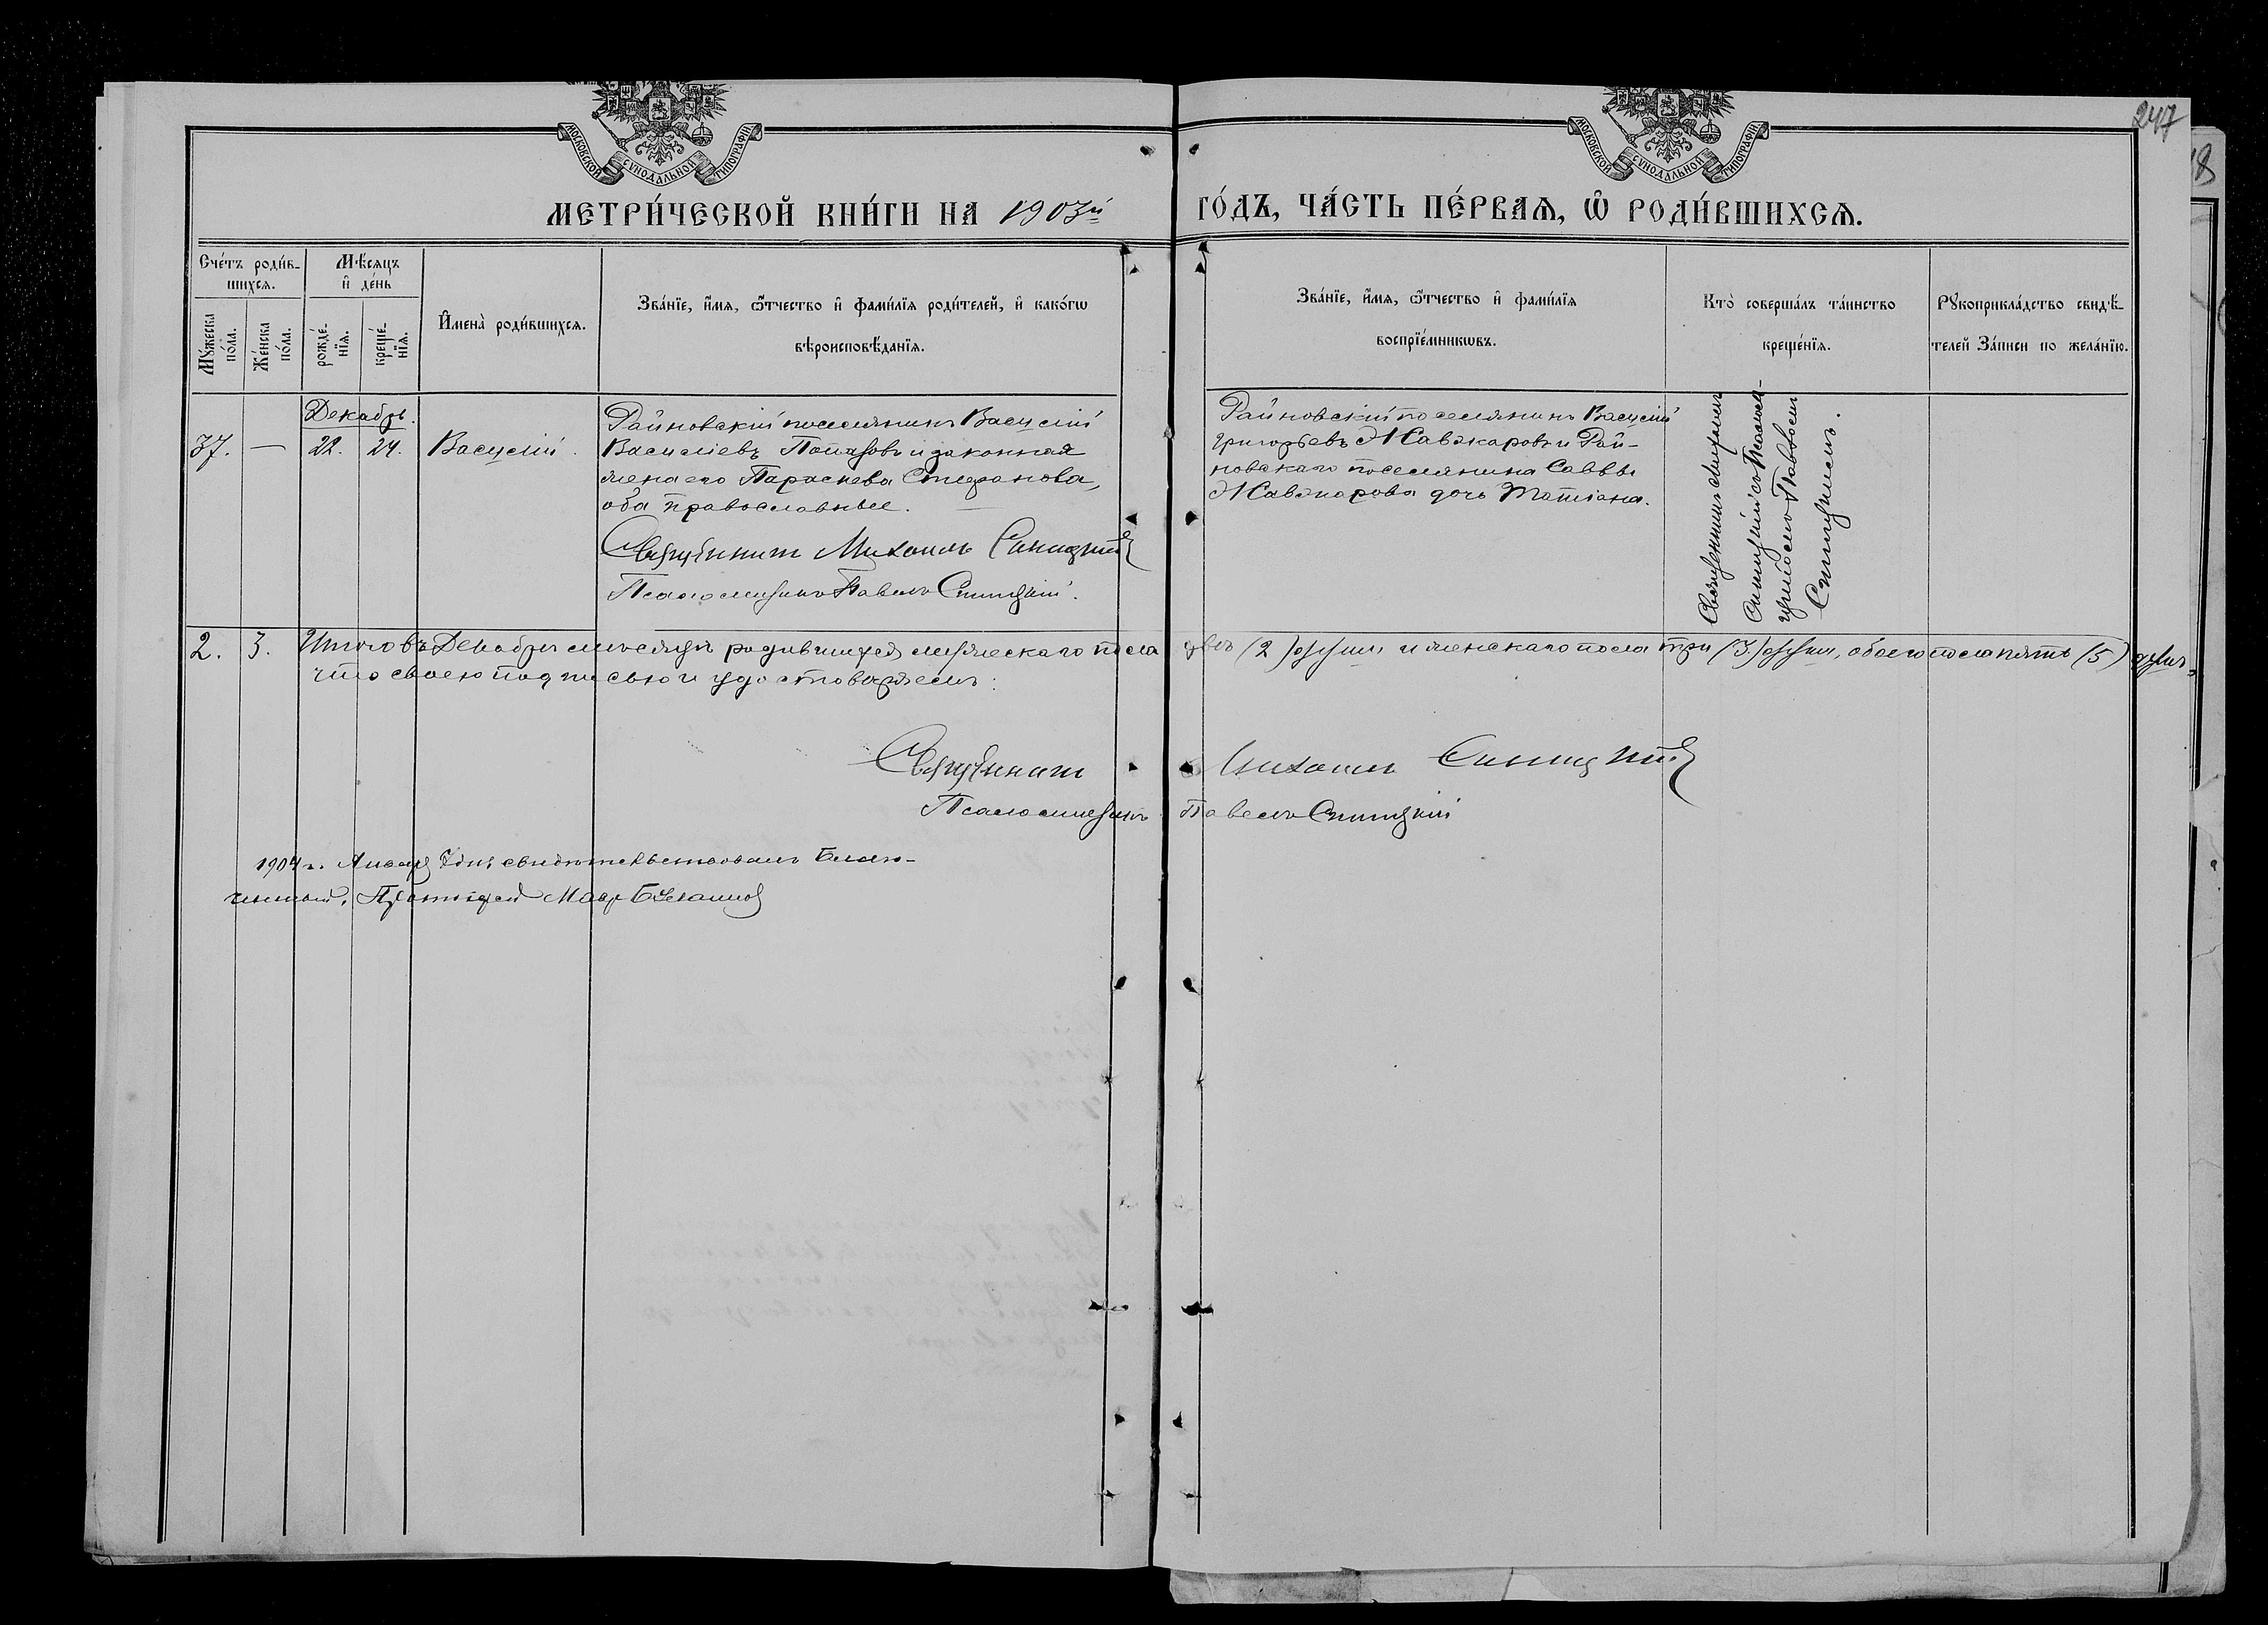 247
МОСКОВСКОЙ СѴНОДАЛЬНОЙ ТИПОГРАФІИ
МОСКОВСКОЙ СѴНОДАЛЬНОЙ ТИПОГРАФІИ
МЕТРИ́ЧЕСКОЙ КНИ́ГИ НА 1903й ГО́ДЪ, ЧА́СТЬ ПЕ́РВАѦ, Ѡ РОДИ́ВШИХСѦ.
Сче́тъ роди́в-
шихся.
Мѣ́сяцъ
и҆ де́нь
Мꙋ́жеска
по́ла.
Же́нска
по́ла.
рожде́-
нїя.
креще́-
нїя.
И҆мена̀ роди́вшихся.
Зва́нїе, и҆́мя, ѻ҆́тчество и҆ фами́лїя роди́телей, и҆ како́гѡ
вѣроисповѣ́данїя.
Зва́нїе, и҆́мя, ѻ҆́тчество и҆ фами́лїя
воспрїе́мникѡвъ.
Кто̀ соверша́лъ та́инство
креще́нїя.
Рꙋкоприкла́дство свидѣ́-
телей За́писи по жела́нїю.
Декабрь.
37. — 22. 24. Василій.
Райновскій поселянинъ Василій
Василіевъ Потаповъ и законная
жена его Параскева Стефанова,
оба православные.
Священникъ Михаилъ Синицкій
Псаломщикъ Павелъ Синицкій.
Райновскій поселянинъ Василій
Григорьевъ Жавжаровъ и Рай-
новскаго поселянина Саввы
Жавжарова дочь Татіана.
Священникъ Михаилъ
Синицкій съ Псалом-
щикомъ Павломъ
Синицкимъ.
2. 3. Итого въ Декабрѣ мѣсяцѣ родившихся мужескаго пола двѣ (2) души и женскаго пола три (3) души, обоего пола пять (5) душъ,
что своею подписью и удостовѣряемъ:
Священникъ Михаилъ Синицкій
Псаломщикъ Павелъ Синицкій
1904 г. Января 7 дня свидѣтельствовалъ Благо-
чинный, Протоіерей